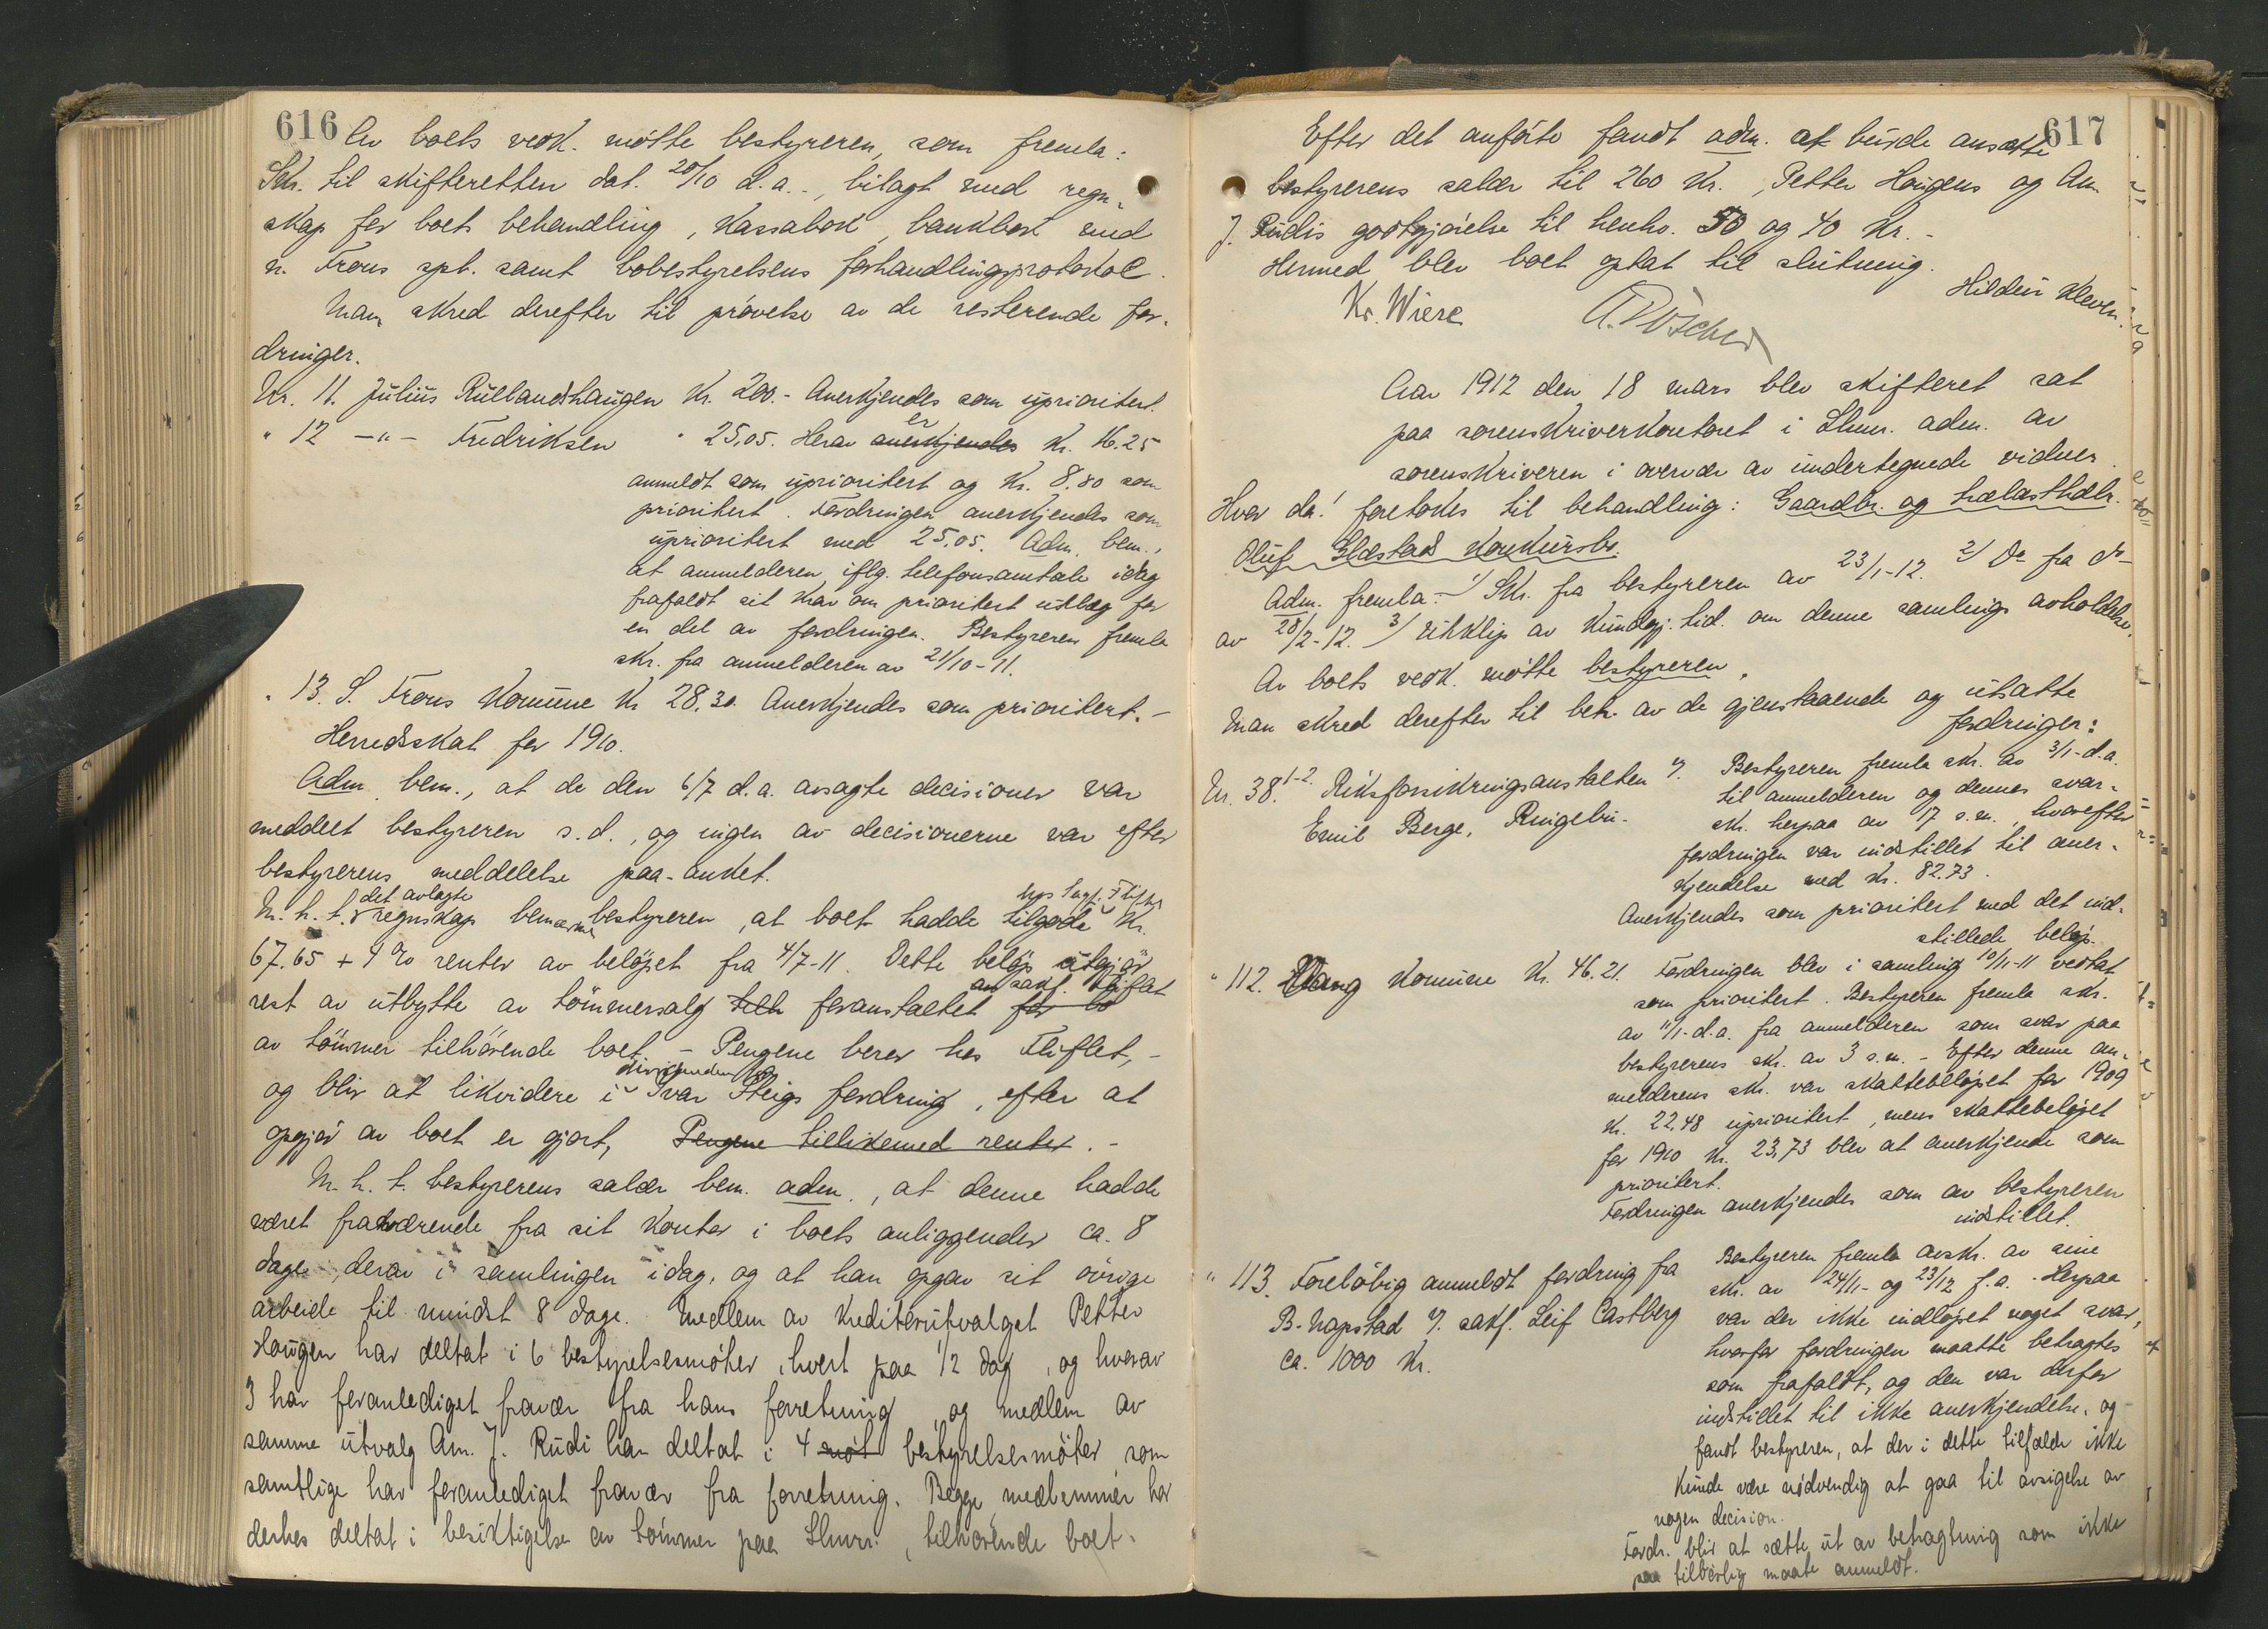 616
Av boets vedk. møtte bestyreren, som fremla:
Skr. til skifteretten dat. 20/10 d.a. -, bilagt med regn-
skap for boets behandling, kassabok, bankbok med
n. Frons spb. samt bobestyrelsens forhandlingsprotokol.
Man skred derefter til prøvelse av de resterende for-
dringer.
Nr. 11. Julius Rullandshaugen kr. 200.- Anerkjendes som uprioritert.
" 12 -"- Fredriksen " 25,05. Herav er anerkjendes kr. 16.25
anmeldt som uprioritert og kr. 8.80 som
prioritert. Fordringen anerkjendes som
uprioritert med 25,05. Adm. bem.,
at anmelderen iflg. telefonsamtale idag
frafaldt sit krav om prioritert utlæg for
en del av fordringen. Bestyreren fremla
skr. fra anmelderen av 21/10-11.
" 13. S. Frons kommune kr 28,30. Anerkjendes som prioritert. -
Herredskat for 1910.
Adm. bem., at de den 6/7 d.a. avsagte decisioner var
meddelt bestyreren s.d., og ingen av decisionerne var efter
bestyrerens meddelelse paa-anket.
M.h.t. det avlagte regnskap bemærket bestyreren, at boet hadde tilgode hos sakf. Fliflet kr.
67.65 + 4 % renter av beløpet fra 4/7-11. Dette beløp utgjør
rest av utbytte av tømmersalg foranstaltet av sakf. Fliflet
av tømmer tilhørende boet - Pengene beror hos Fliflet, -
og blir at likvidere i dividenden for Ivar Steigs fordring, efter at
opgjør av boet er gjort, Pengene tillikemed renter. -
M.h.t. bestyrerens salær bem. adm., at denne hadde
været fraværende fra sit kontor i boets anliggender ca. 8
dage, derav i samlingen idag, og at han opgav sit øvrige
arbeide til mindst 8 dage. Medlem av kreditorutvalget Petter
Haugen har deltat i 6 bestyrelsesmøter, hvert paa 1/2 dag, og hvorav
3 har foranlediget fravær fra hans forretning, og medlem av
samme utvalg Am. J. Rudi har deltat i 4 møt bestyrelsesmøter som
samtlige har foranlediget fravær fra forretning. Begge medlemmer har
derhos deltat i besiktigelse av tømmer paa Lhmr., tilhørende boet.
617
Efter det anførte fandt adm. at burde ansætte
bestyrerens salær til 260 kr., Petter Haugens og Am.
J. Rudis godtgjørelse til henhv. 50 og 40 kr. -
Hermed blev boet optat til slutning.
Hildur Kleven.
Kr. Wiese
Aar 1912 den 18 mars blev skifteret sat
paa sorenskriverkontoret i Lhmr. adm. av
sorenskriveren i overvær av undertegnede vidner.
Hvor da! foretokes til behandling: Gaardbr. og trælasthdlr.
Oluf Elstad konkursbo.
Adm. fremla: 1/ Skr. fra bestyreren av 23/1-12. 2/ Do fra do
av 28/2-12. 3/ Utklip av kundgj. tid. om denne samlings avholdelse.
Av boets vedk. møtte bestyreren.
Man skred derefter til beh. av de gjenstaaende og utsatte
fordringer:
Nr. 38. 1-2. Riksforsikringsanstalten v. Bestyreren fremla skr. av 3/1-d.a.
Emil Berge, Ringebu. til anmelderen og dennes svar-
skr. herpaa av 17 s.m., hvorefter
fordringen var indstillet til aner-
kjendelse med kr. 82.73.
Anerkjendes som prioritert med det ind-
stillede beløp.
" 112. Vang kommune kr. 46.21. Fordringen blev i samling 10/11-11 vedtat
som prioritert. Bestyreren fremla skr.
av 11/1-d.a. fra anmelderen som svar paa
bestyrerens skr. av 3 s.m. - Efter denne an-
melderens skr. var skattebeløpet for 1909
kr. 22.48 uprioritert, mens skattebeløpet
for 1910 kr. 23,73 blev at anerkjende som
prioritert.
Fordringen anerkjendes som av bestyreren
indstillet.
" 113. Foreløbig anmeldt fordring fra Bestyreren fremla avskr. av sine
skr. av 24/11- og 23/12 f.a. Herpaa
B. Napstad v. sakf. Leif Castberg var der ikke indløpet noget svar,
ca. 1000 kr. hvorfor fordringen maatte betragtes
som frafaldt, og den var derfor
indstillet til ikke anerkjendelse, og
fandt bestyreren, at der i dette tilfælde ikke
kunde være nødvendig at gaa til avsigelse av
nogen decision.
Fordr. blir at sætte ut av betragtning som ikke
paa tilbørlig maate anmeldt.